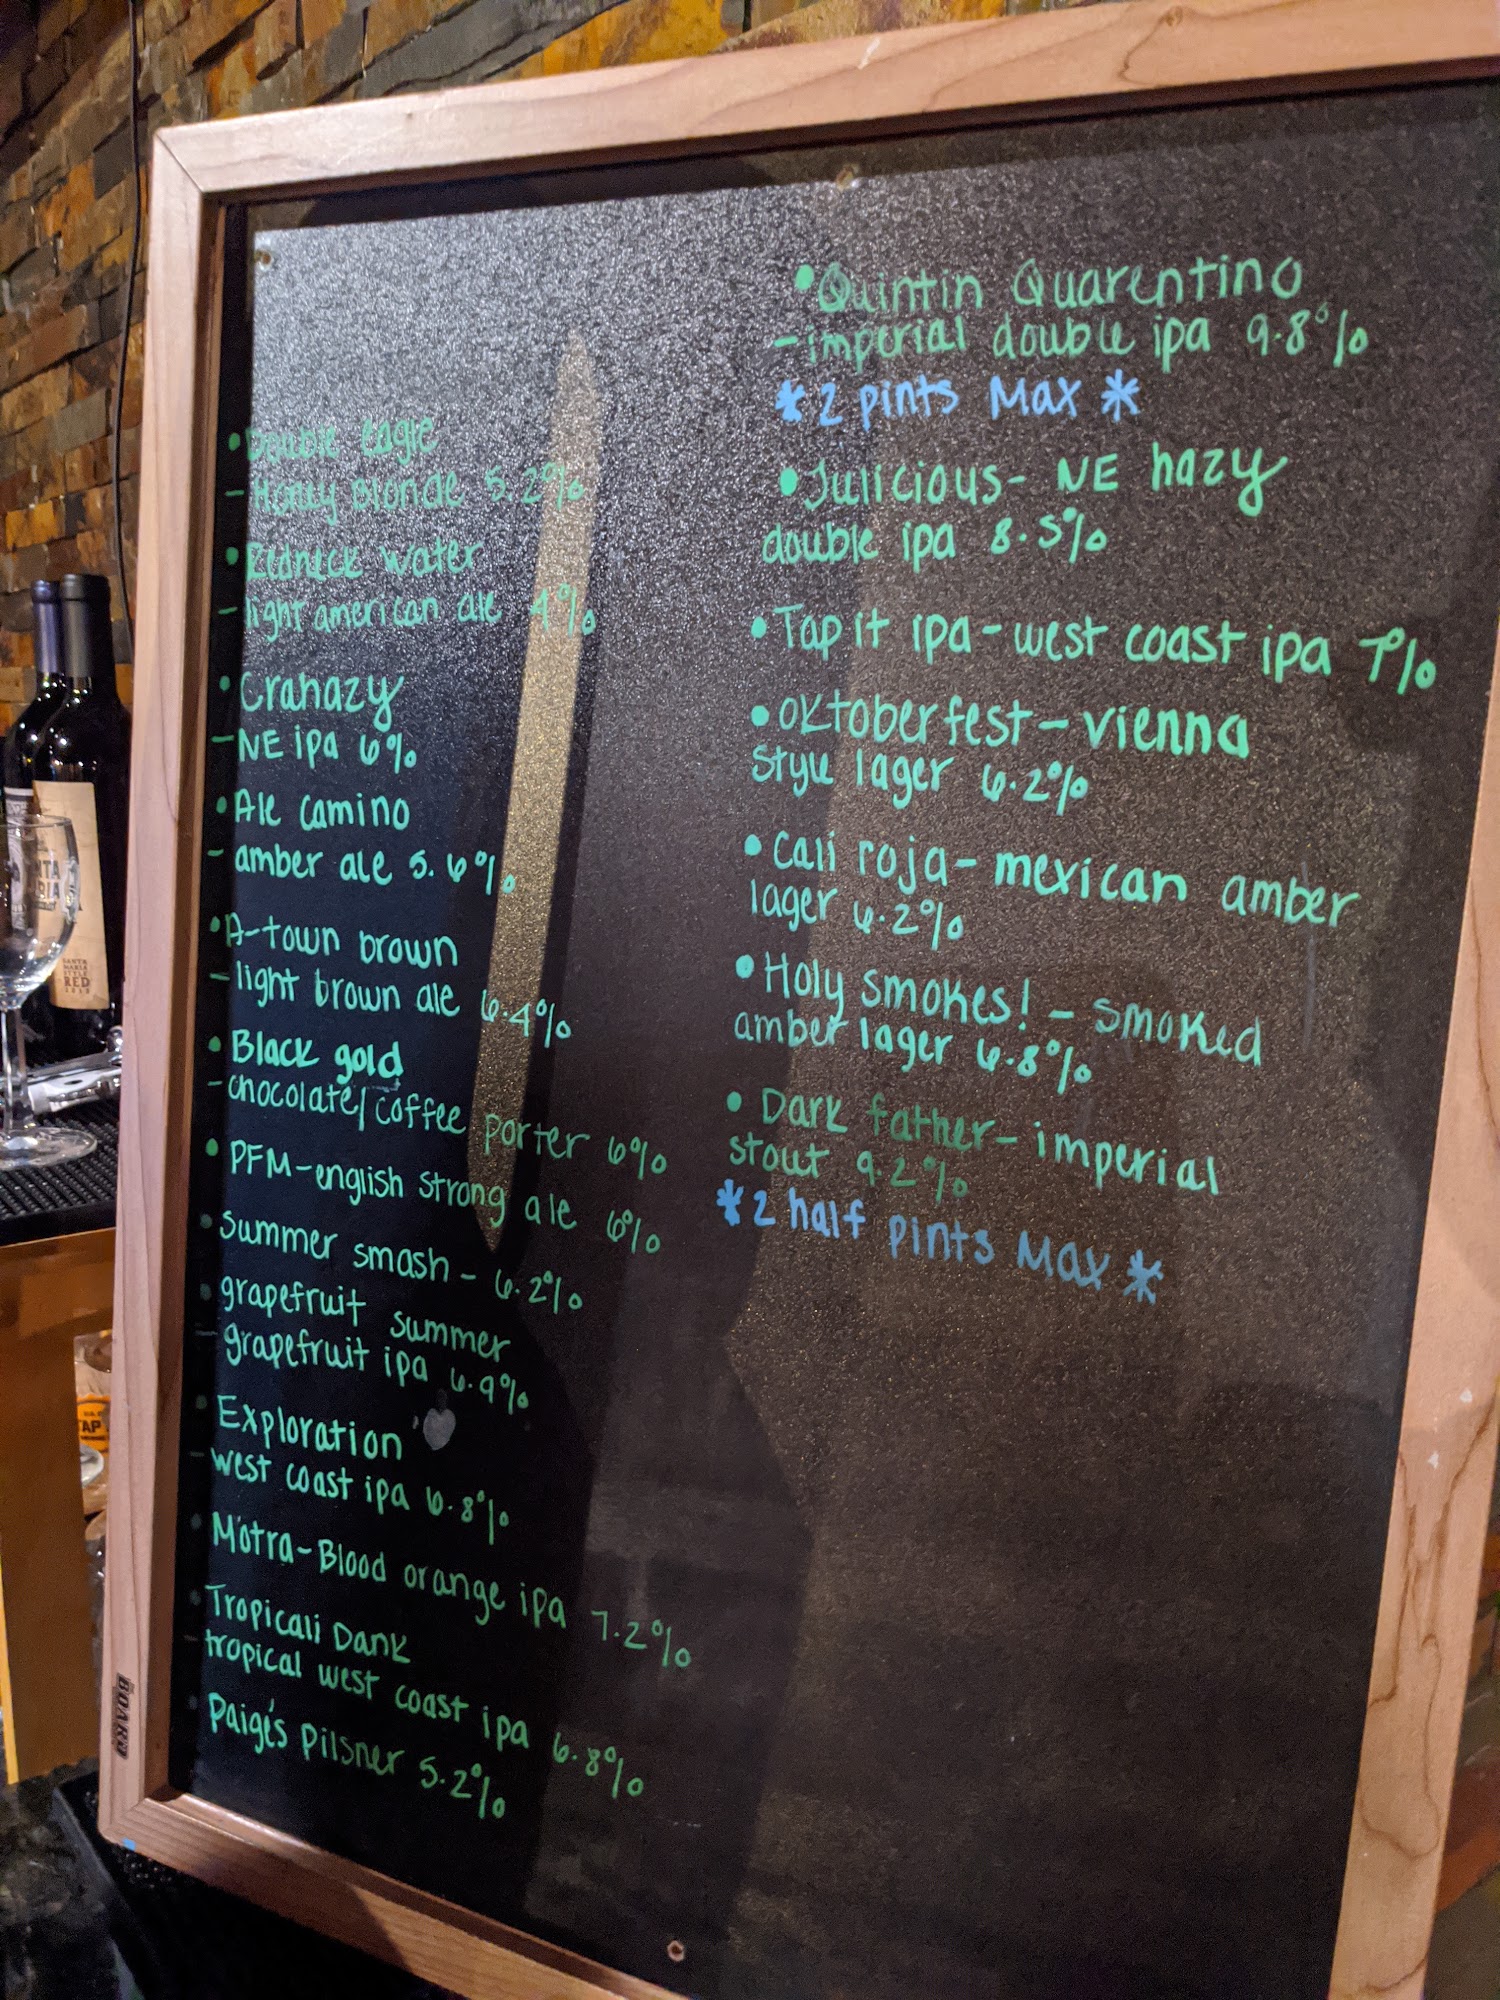 • Double eagle
- Honey Blonde 5.2%
• Redneck water
- light american ale 4%
• Crahazy
- NE ipa 6%
• Ale camino
- amber ale 5.6%
• A-town brown
- light brown ale 6.4%
• Black gold
- chocolate/coffee porter 6%
• PFM-english strong ale 6%
• Summer smash - 6.2%
• grapefruit summer
- grapefruit ipa 6.9%
• Exploration
- west coast ipa 6.8%
• Motra-Blood orange ipa 7.2%
• Tropicali Dank
- tropical west coast ipa 6.8%
• Paige's Pilsner 5.2%
• Quintin Quarentino
- imperial double ipa 9.8%
* 2 pints Max *
• Julicious- NE hazy
double ipa 8.5%
• Tap it ipa-west coast ipa 7%
• oktoberfest-vienna
style lager 6.2%
• Cali roja-mexican amber
lager 6.2%
• Holy smokes! - smoked
amber lager 6.8%
• Dark father-imperial
stout 9.2%
* 2 half pints Max *
SANTA
MARIA
STYLE
RED
TAP
BOARD